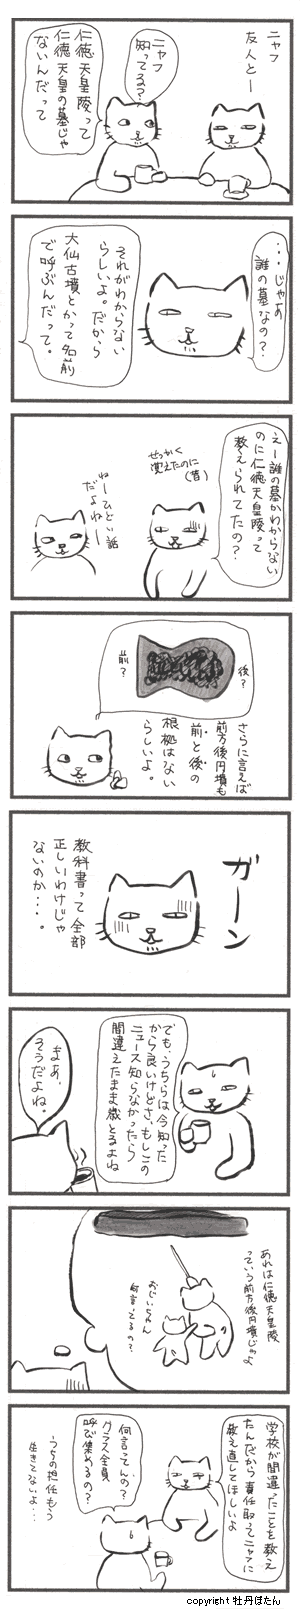 ニャフ
友人とー
ニャフ
知ってる?
仁徳天皇陵って
仁徳天皇の墓じゃ
ないんだって
・・・じゃあ
誰の墓なの?
それがわからない
らしいよ。だから
大仙古墳とかって名前
で呼ぶんだって。
えー誰の墓かわからない
のに仁徳天皇陵って
教えられてたの?
せっかく
覚えたのに
(昔)
ねーひどい話
だよねー
さらに言えば
前方後円墳も
前と後の
根拠はない
らしいよ。
後?
前?
ガーン
教科書って全部
正しいわけじゃ
ないのか・・・。
でも、うちらは今知った
から良いけどさ、もしこの
ニュース知らなかったら
間違えたまま歳とるよね
まあ、
そうだよね。
あれは仁徳天皇陵
っていう前方後円墳じゃよ
おじいちゃん
何言ってるの?
学校が間違ったことを教え
たんだから責任取ってニャフに
教え直してほしいよ
何言ってんの?
クラス全員
呼び集めるの?
うちの担任もう
生きてないよ・・・
copyright 牡丹ぼたん